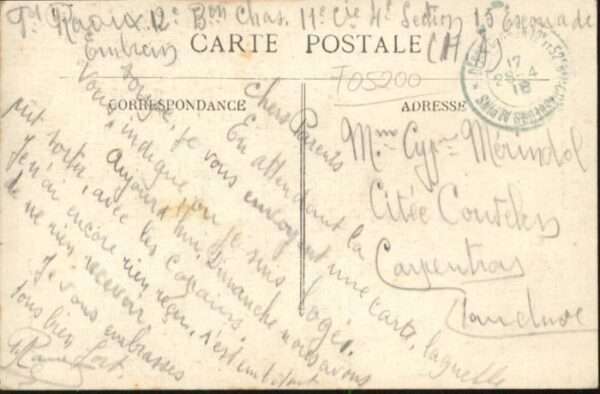 12e Bon Chas. 11e Cie 4e Section 15 Escouade
Embrun
CARTE POSTALE
T05200
17
28-4
18
CORRESPONDANCE
ADRESSE
Chers Parents
En attendant la
soupe, je vous envoyant une carte, laquelle
vous indique ou je suis loger.
Aujourd'hui Dimanche nous avons
put sortir, avec les copains.
J'en ai encore rien reçu, s'est embêtant
de ne rien recevoir
Je vous embrasses
tous bien fort.
Mme Cypn Mérindol
Citée Coutelen
Carpentras
Vaucluse